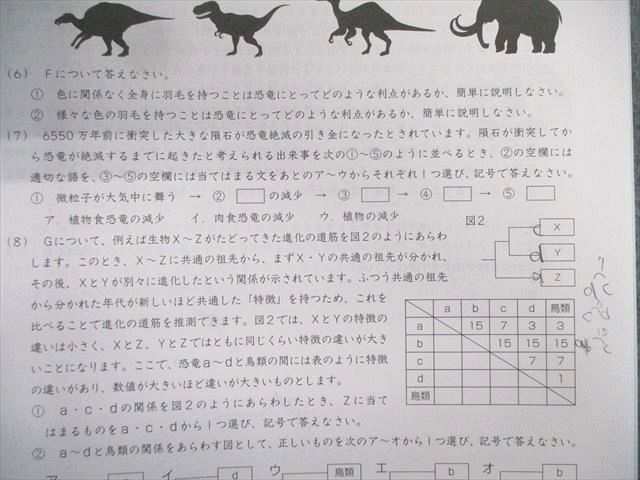 (6) Fについて答えなさい。
① 色に関係なく全身に羽毛を持つことは恐竜にとってどのような利点があるか、簡単に説明しなさい。
② 様々な色の羽毛を持つことは恐竜にとってどのような利点があるか、簡単に説明しなさい。
(7) 6550万年前に衝突した大きな隕石が恐竜絶滅の引き金になったとされています。隕石が衝突してか
ら恐竜が絶滅するまでに起きたと考えられる出来事を次の①～⑤のように並べるとき、②の空欄には
適切な語を、③～⑤の空欄には当てはまる文をあとのア～ウからそれぞれ1つ選び、記号で答えなさい。
① 微粒子が大気中に舞う → ② □ の減少 → ③ □ → ④ □ → ⑤ □
ア. 植物食恐竜の減少 イ. 肉食恐竜の減少 ウ. 植物の減少
図2
X
Y
Z
(8) Gについて、例えば生物X～Zがたどってきた進化の道筋を図2のようにあらわ
します。このとき、X～Zに共通の祖先から、まずX・Yの共通の祖先が分かれ、
その後、XとYが別々に進化したという関係が示されています。ふつう共通の祖先
から分かれた年代が新しいほど共通した「特徴」を持つため、これを
比べることで進化の道筋を推測できます。図2では、XとYの特徴の
違いは小さく、XとZ、YとZではともに同じくらい特徴の違いが大き
いことになります。ここで、恐竜a～dと鳥類の間には表のように特徴
の違いがあり、数値が大きいほど違いが大きいものとします。
a b c d 鳥類
a 15 7 3 3
b 15 15 15
c 7 7
d 1
鳥類
① a・c・dの関係を図2のようにあらわしたとき、Zに当て
はまるものをa・c・dから1つ選び、記号で答えなさい。
② a～dと鳥類の関係をあらわす図として、正しいものを次のア～オから1つ選び、記号で答えなさい。
ア イ d ウ 鳥類 エ b オ b